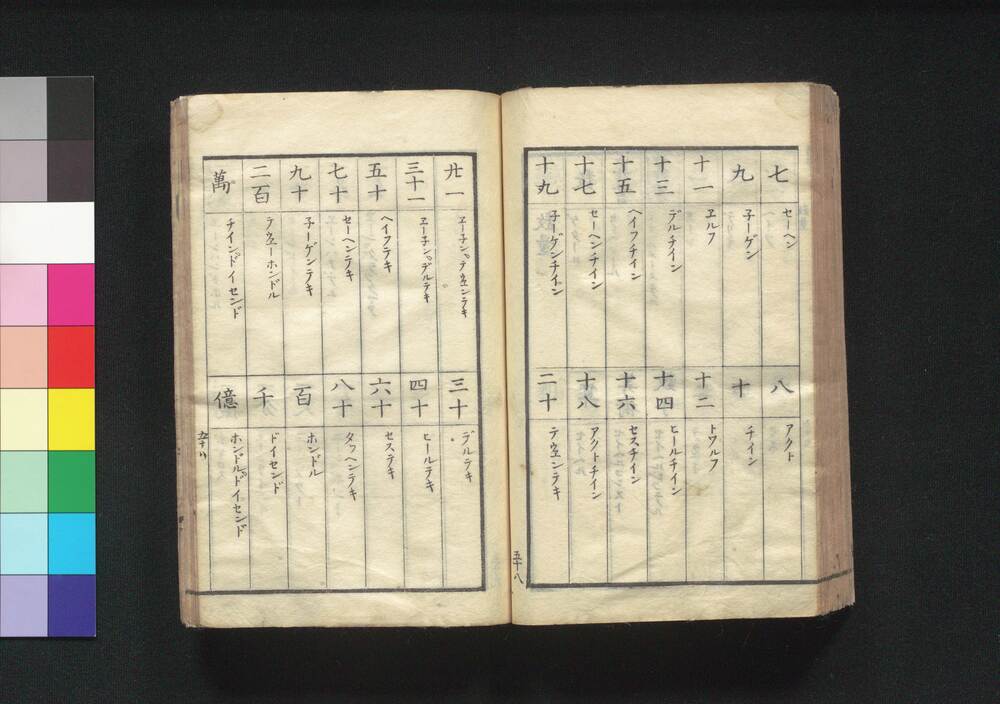 七 セーヘン
八 アクト
九 子ーゲン
十 チイン
十一 ヱルフ
十二 トワルフ
十三 デルチイン
十四 ヒールチイン
十五 ヘイフチイン
十六 セスチイン
十七 セーヘンチイン
十八 アクトチイン
十九 子ーゲンチイン
二十 テウエンテキ
五十八
廿一 ヱー子ン。テウエンテキ
三十 デルテキ
三十一 ヱー子ン。デルテキ
四十 ヒールテキ
五十 ヘイフテキ
六十 セステキ
七十 セーヘンテキ
八十 タクヘンテキ
九十 子ーゲンテキ
百 ホンドル
二百 テウエーホンドル
千 ドイセンド
萬 チイン。ドイセンド
億 ホンドル。ドイセンド
五十八